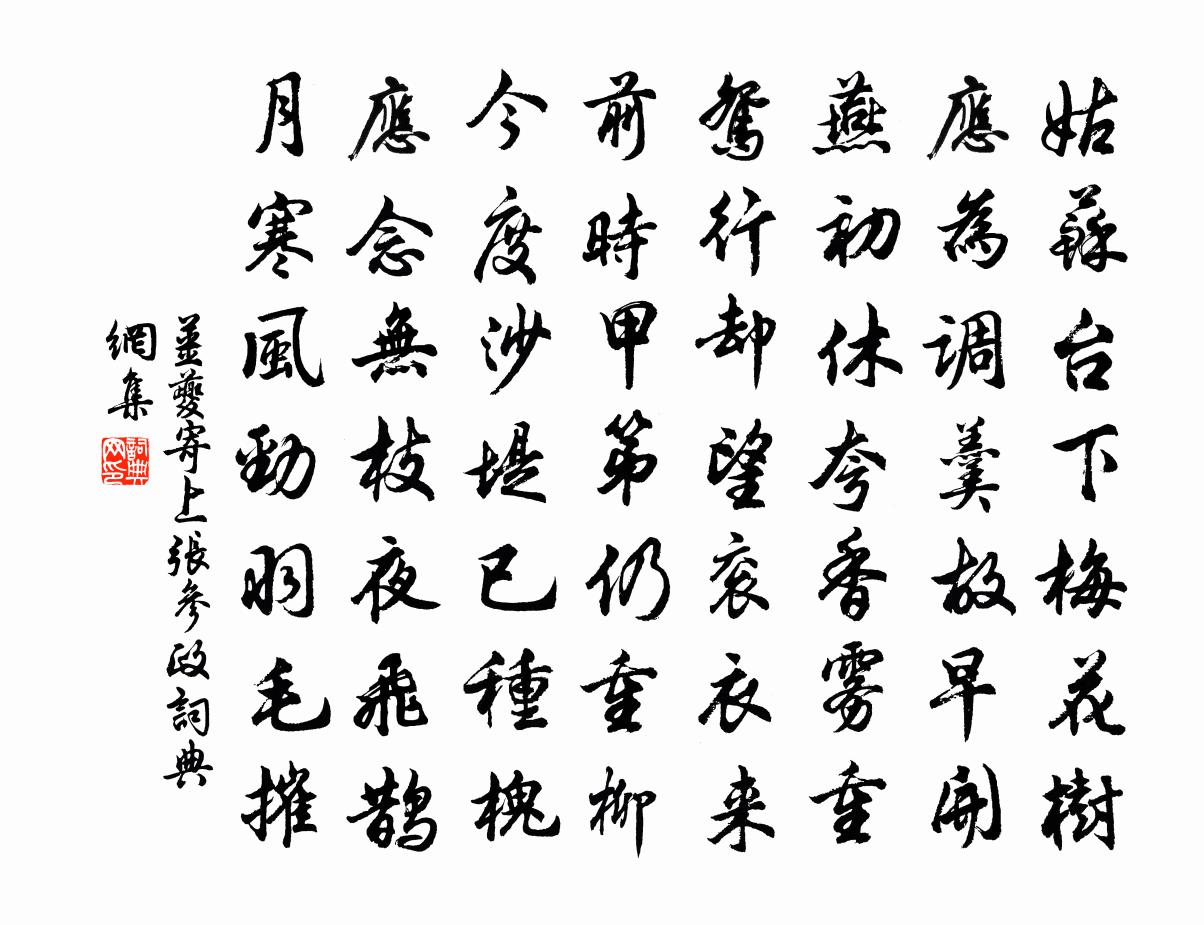 姑蘇台下梅花樹
應為調羹故早開
燕初休夸香雾重
鴛行却望衮衣来
前時甲第仍重柳
今度沙堤已種槐
應念無枝夜飛鵲
月寒風勁羽毛摧
姜夔寄上張參政詞典
網集
詞典
网印